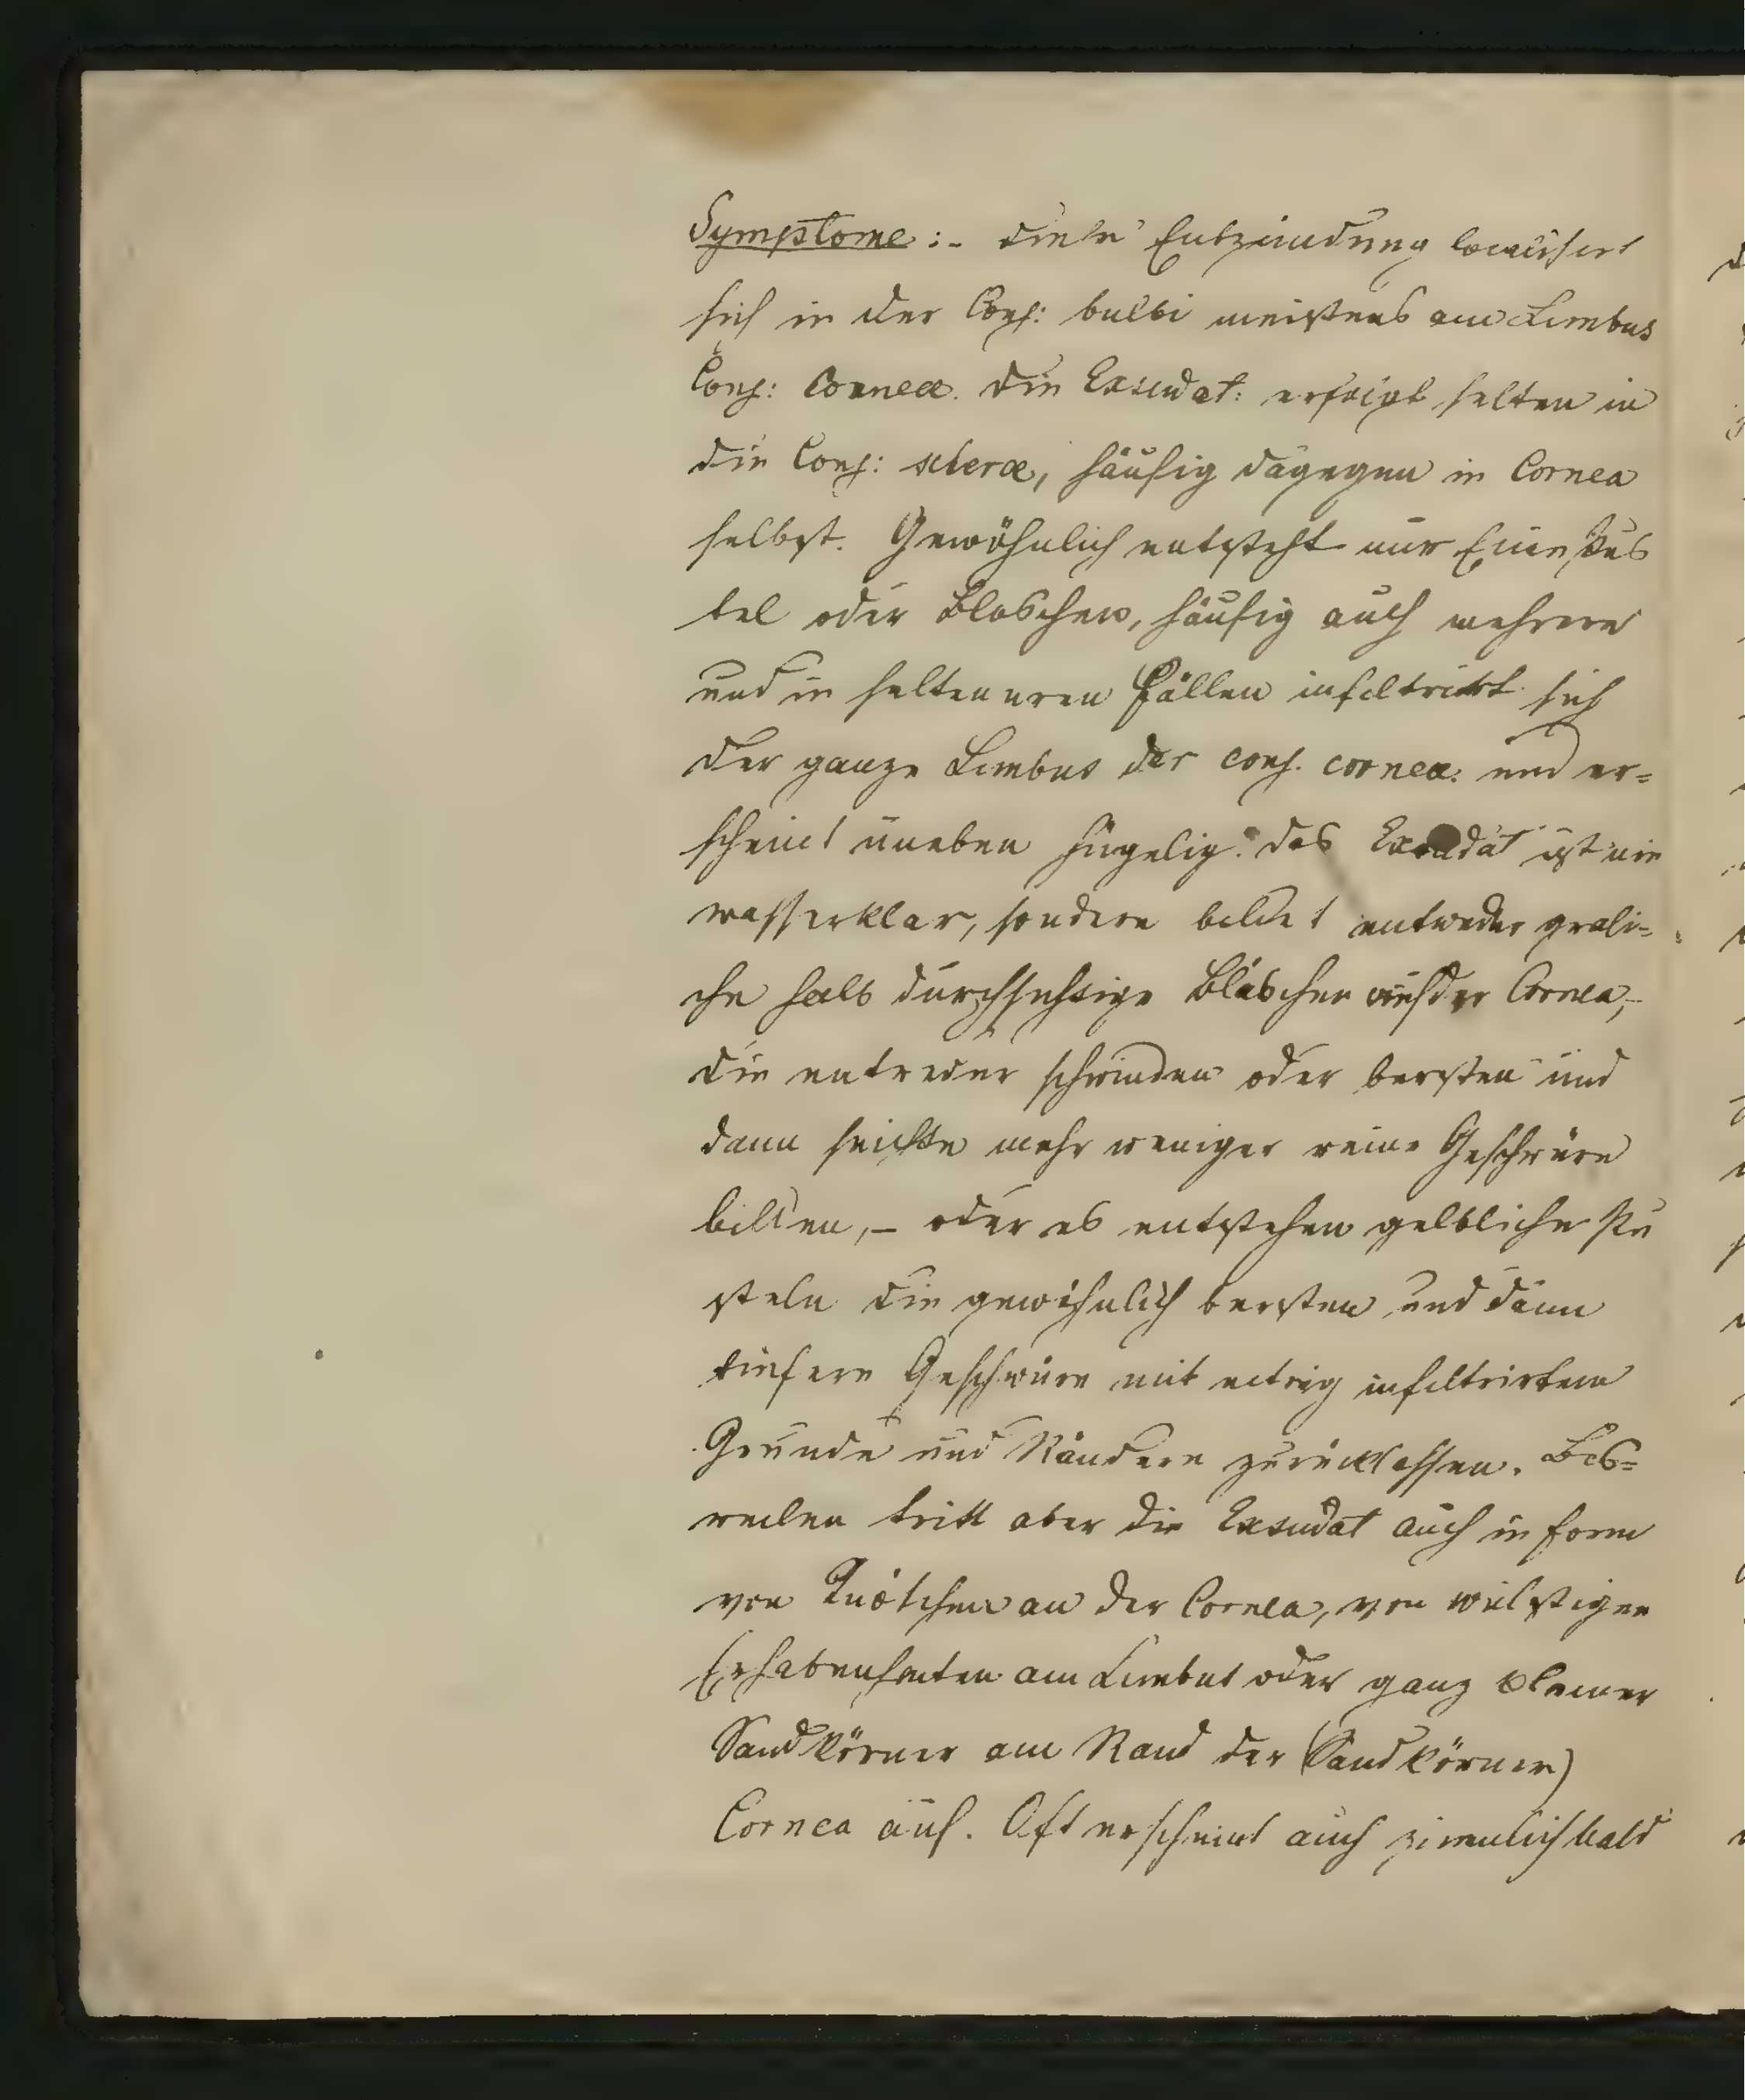 Symptome :- diese Entzündung localisirt
sich in der Conj: bulbi meistens am Limbus
Conj: Corneæ. die Exsudat: erfolgt selten in
die Conj: scleræ, häufig dagegen in Cornea
selbst. Gewöhnlich entsteht nur Eine Pus
tel oder Bläschen, häufig auch mehrere
und in selteneren Fällen infiltrirt sich
der ganze Limbus der conj. corneæ: und er=
scheint uneben hügelig. das Exsudat ist nie
wasserklar, sondern bildet entweder grali=
che halb durchsichtige Bläschen auf der Cornea,-
die entweder schwinden oder bersten und
dann seichte mehr weniger reine Geschwüre
bilden,- oder es entstehen gelbliche Pu
steln die gewöhnlich bersten und dann
tiefere Geschwüre mit eitrig infiltrirtem
Grunde und Rändern zurücklassen. Bis=
weilen tritt aber die Exsudat auch in Form
von Knötchen an der Cornea, von wulstigen
Erhabenheiten am Limbus oder ganz kleiner
Sandkörner am Rand der (Sandkörner)
Cornea auf. Oft erscheint auch ziemlich bald